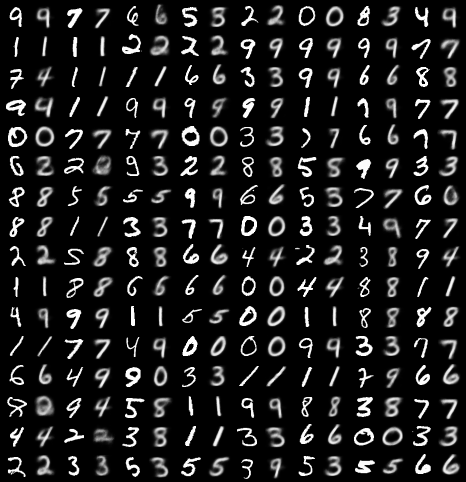 9 9 7 7 6 6 5 3 2 2 0 0 8 3 4 9
1 1 1 1 2 2 2 2 9 9 9 9 9 9 7 7
7 4 1 1 1 1 6 6 3 3 9 9 6 6 8 8
9 4 1 1 9 9 9 9 9 9 1 1 7 9 7 7
0 0 7 7 7 7 0 0 3 3 7 7 6 6 7 7
6 3 2 9 3 2 2 8 8 5 8 9 9 3 3
8 8 5 5 5 5 9 9 6 6 5 3 7 7 6 0
8 8 1 1 3 3 7 7 0 0 3 3 4 9 7 7
2 2 5 8 8 8 6 6 4 4 2 2 3 8 9 4
1 1 8 8 6 6 6 6 0 0 4 4 8 8 1 1
4 9 9 9 1 1 5 5 0 0 1 1 8 8 8 8
1 1 7 7 4 9 0 0 0 0 9 9 3 3 7 7
6 6 4 9 9 0 3 3 1 1 1 1 7 9 6 6
8 0 9 4 5 8 1 1 9 9 8 8 3 8 7 7
4 4 2 3 8 1 1 3 3 6 6 0 0 3 3
2 2 3 3 5 3 5 5 3 9 5 3 5 5 6 6